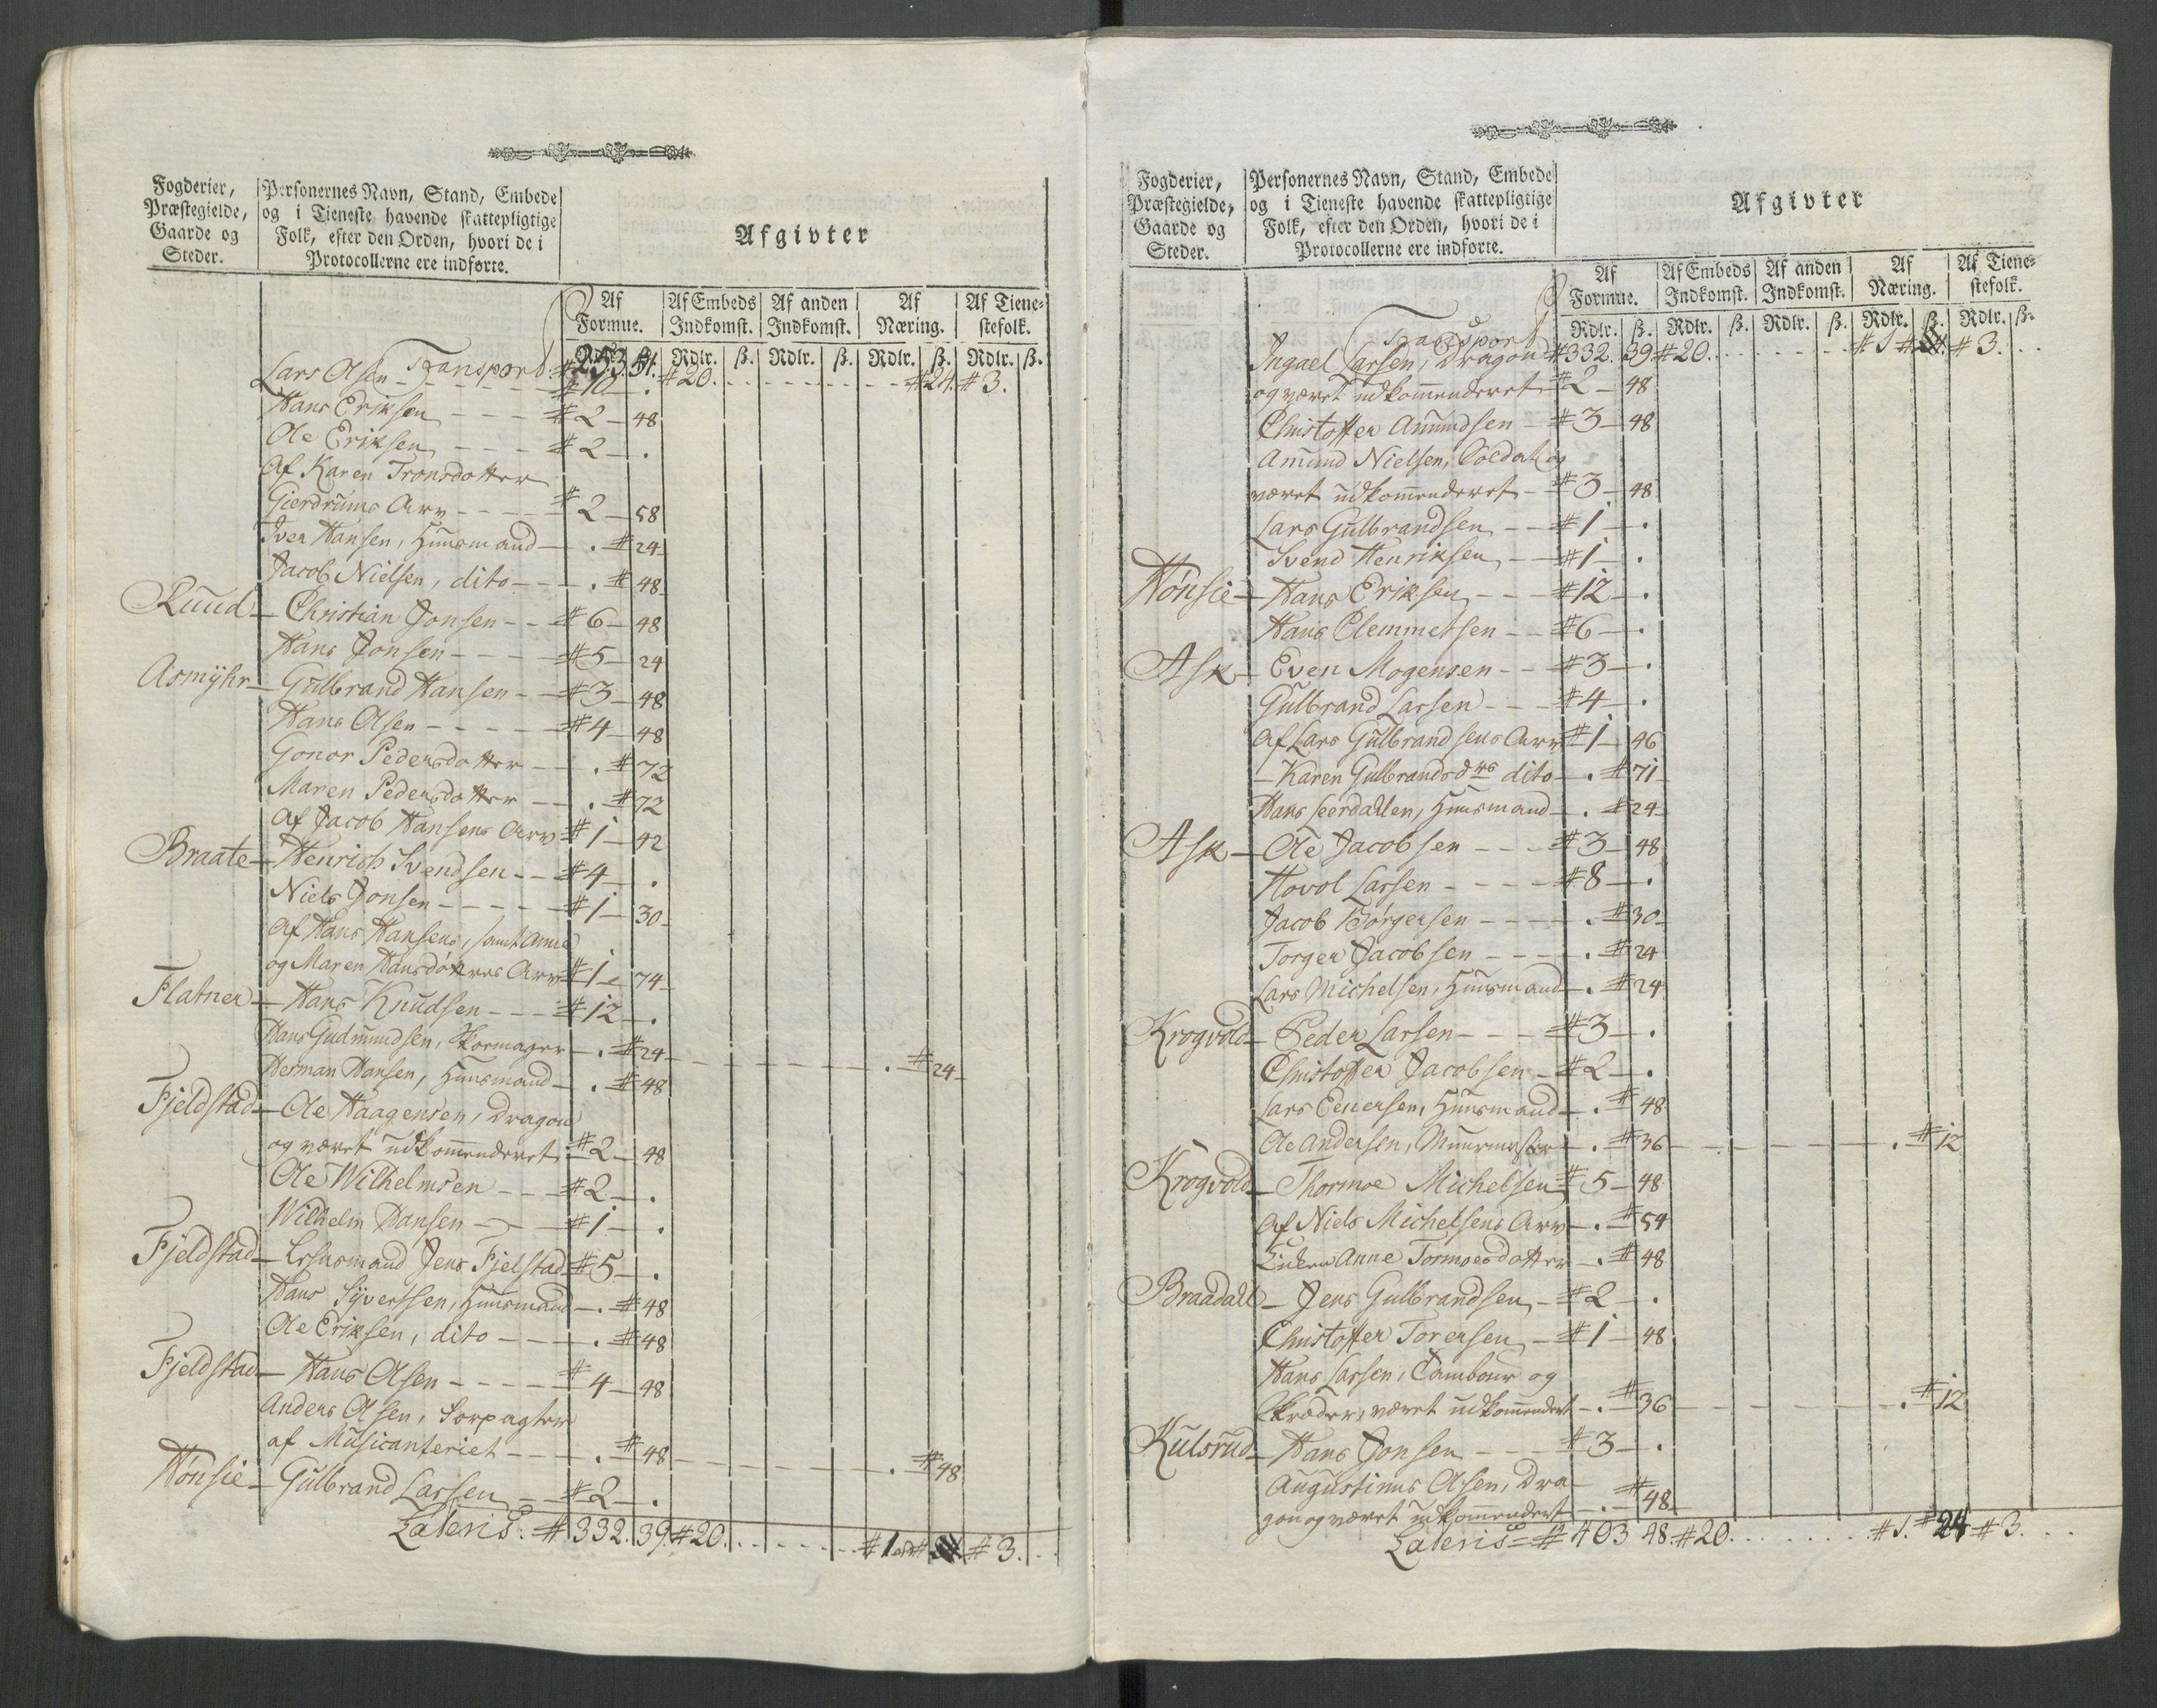 Fogderier, Præstegielde, Gaarde og Steder.
Personernes Navn, Stand, Embede og i Tieneste havende skattepligtige Folk, efter den Orden, hvori de i Protocollerne ere indførte.
Afgivter
Af Formue. Af Embeds Indkomst. Af anden Indkomst. Af Næring. Af Tienestefolk.
Rdlr. ß. Rdlr. ß. Rdlr. ß. Rdlr. ß. Rdlr. ß.
Transport # 253 51. # 20. # 24. # 3.
Lars Olsen # 10 .
Hans Eriksen # 2 48
Ole Eriksen # 2 .
Af Karen Tronsdotter
Gierdrums Arv # 2 58
Iver Hansen, Huusmand . # 24
Jacob Nielsen, dito . # 48
Ruud Christian Jonsen # 6 48
Hans Jonsen # 5 24
Asmyhr Gulbrand Hansen # 3 48
Hans Olsen # 4 48
Gonor Pedersdotter . # 72
Maren Pedersdotter . # 72
Af Jacob Hansens Arv # 1 42
Braate Henrich Svendsen # 4 .
Niels Jonsen # 1 30
Af Hans Hansens, samt Anne
og Maren Hansdøttres Arv # 1 74
Flatner Hans Knudsen # 12 .
Hans Gudmundsen, Skomager . # 24 . # 24
Herman Hansen, Huusmand . # 48
Fjeldstad Ole Haagensen, Dragon
og været udkommenderet # 2 48
Ole Wilhelmsen # 2 .
Wilhelm Hansen # 1 .
Fjeldstad Lehnsmand Jens Fjelstad # 5 .
Hans Syversen, Huusmand . # 48
Ole Eriksen, dito . # 48
Fjeldstad Hans Olsen # 4 48
Anders Olsen, Forpagter
af Musicanteriet . # 48 . # 48
Hønsie Gulbrand Larsen # 2 .
Lateris # 332. 39 # 20. # 1 # 3.
Fogderier, Præstegielde, Gaarde og Steder.
Personernes Navn, Stand, Embede og i Tieneste havende skattepligtige Folk, efter den Orden, hvori de i Protocollerne ere indførte.
Afgivter
Af Formue. Af Embeds Indkomst. Af anden Indkomst. Af Næring. Af Tienestefolk.
Rdlr. ß. Rdlr. ß. Rdlr. ß. Rdlr. ß. Rdlr. ß.
Transport # 332. 39 # 20. # 1 # 3.
Ingael Larsen, Dragon
og været udkommenderet # 2 48
Christoffer Amundsen # 3 48
Amund Nielsen, Soldat og
været udkommenderet # 3 48
Lars Gulbrandsen # 1 .
Svend Henriksen # 1 .
Hønsie Hans Eriksen # 12 .
Hans Clemmetsen # 6 .
Ask Even Mogensen # 3 .
Gulbrand Larsen # 4 .
Af Lars Gulbrandsens Arv # 1 46
Karen Gulbrandsd dito . # 71
Hans Leerdallen, Huusmand . # 24
Ask Ole Jacobsen # 3 48
Hovol Larsen # 8 .
Jacob Børgersen . # 30
Torger Jacobsen . # 24
Lars Michelsen, Huusmand . # 24
Krogvold Peder Larsen # 3 .
Christoffer Jacobsen # 2 .
Lars Evensen, Huusmand . # 48
Ole Andersen, Muurmester . # 36 . # 12
Krogvold Thormoe Michelsen # 5 48
Af Niels Michelsens Arv . # 54
Enken Anne Tormoesdotter . # 48
Braadall Jens Gulbrandsen # 2 .
Christoffer Torersen # 1 48
Hans Larsen, Tambour og
Skræder, været udkommendert . # 36 . # 12
Kulsrud Hans Jonsen # 3 .
Augustinus Olsen, Dra-
gon og været udkommendert . # 48
Lateris # 403 48 # 20. # 1. # 24 # 3.